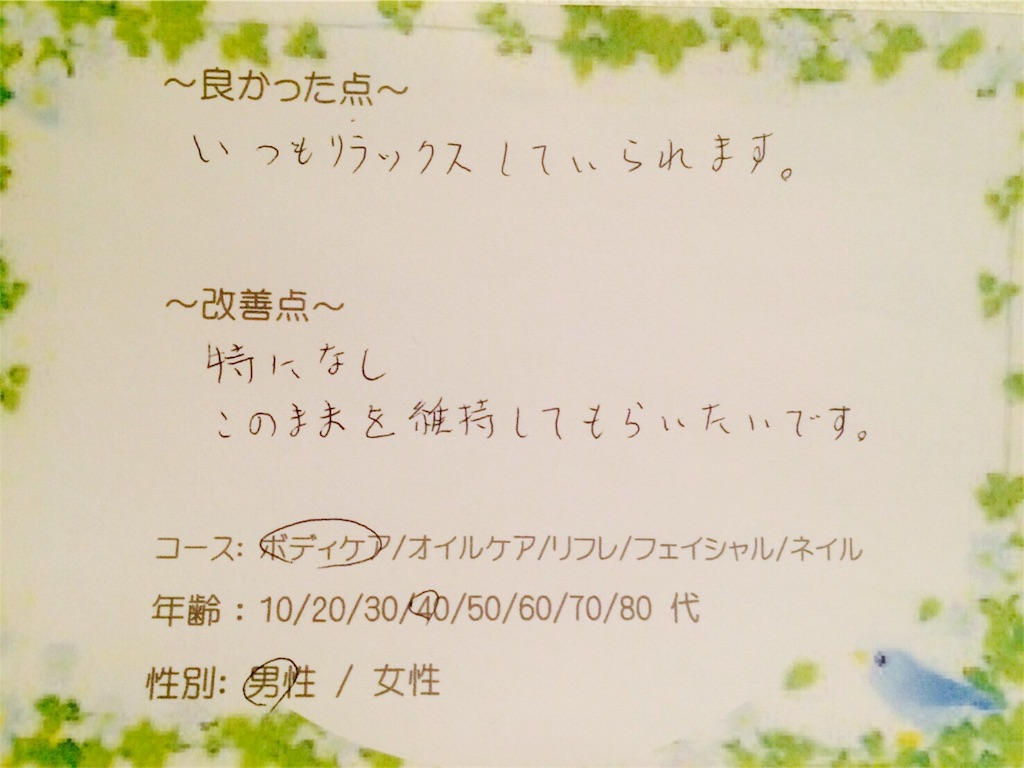 ～良かった点～
いつもリラックスしていられます。
～改善点～
特になし
このままを維持してもらいたいです。
コース: ボディケア/オイルケア/リフレ/フェイシャル/ネイル
年齢：10/20/30/40/50/60/70/80 代
性別: 男性 / 女性